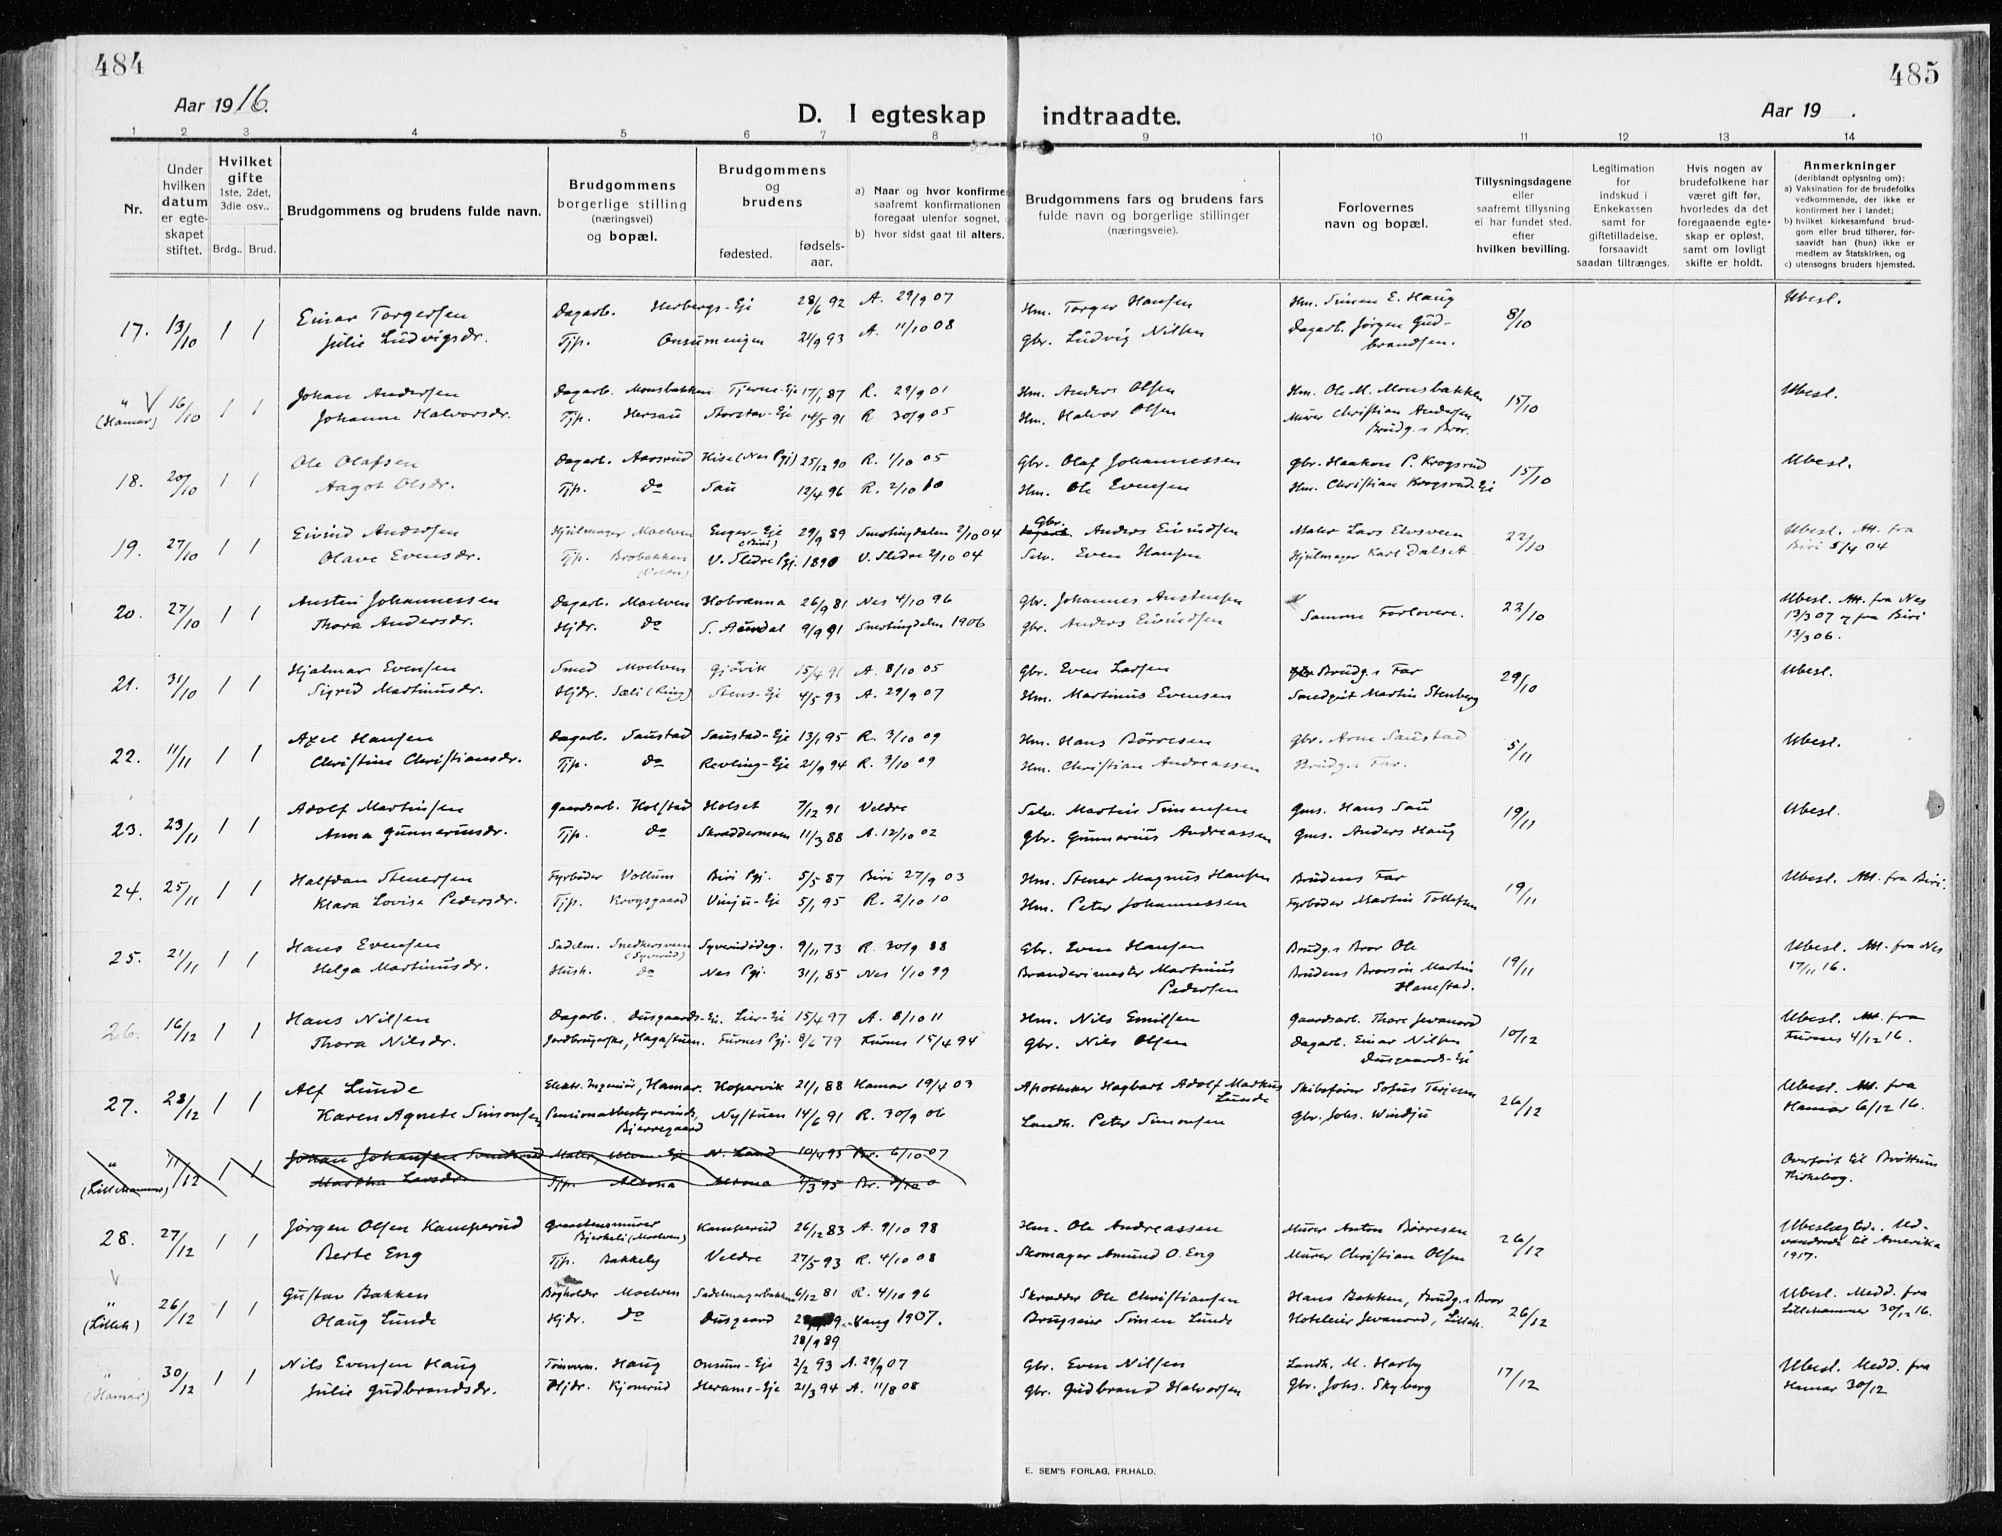 484
485
Aar 1916.
D. I egteskap indtraadte.
Aar 19 .
1 2 3 4 5 6 7 8 9 10 11 12 13 14
Nr.
Under hvilken datum er egteskapet stiftet.
Hvilket gifte
1ste, 2det, 3die osv..
Brdg.. Brud.
Brudgommens og brudens fulde navn.
Brudgommens borgerlige stilling (næringsvei) og bopæl.
Brudgommens og brudens
fødested.
fødsels-aar.
a) Naar og hvor konfirme
saafremt konfirmationen
foregaat utenfor sognet,
b) hvor sidst gaat til alters.
Brudgommens fars og brudens fars
fulde navn og borgerlige stillinger
(næringsveie).
Forlovernes
navn og bopæl.
Tillysningsdagene
eller
saafremt tillysning
ei har fundet sted,
efter
hvilken bevilling.
Legitimation
for
indskud i
Enkekassen
samt for
giftetilladelse,
forsaavidt
saadan tiltrænges.
Hvis nogen av
brudefolkene har
været gift før,
hvorledes da det
foregaaende egte-
skap er opløst,
samt om lovligt
skifte er holdt.
Anmerkninger
(deriblandt oplysning om):
a) Vaksination for de brudefolks
vedkommende, der ikke er
konfirmert her i landet;
b) hvilket kirkesamfund brud-
gom eller brud tilhører, for-
saavidt han (hun) ikke er
medlem av Statskirken, og
c) utensogns bruders hjemsted.
17. 13/10 1 1 Einar Torgersen Dagarb. Herbergs-Eje 28/6 92 A. 29/9 07 Hm. Torger Hansen Hm. Simen E. Haug 8/10 Ubesl.
Julie Ludvigsdr. Tjp. Onsumengen 21/9 93 A. 11/10 08 Gbr. Ludvig Nilsen Dagarb. Jörgen Gud-
brandsen.
" (Hamar) 16/10 1 1 Johan Andersen Dagarb. Monsbakken Tjerne-Eje 17/1 87 R. 29/9 01 Hm. Anders Olsen Hm. Ole M. Monsbakken 15/10 Ubesl.
Johanne Halvorsdr. Tjp. Hersau 14/5 91 R 30/9 05 Hm. Halvor Olsen Murer Christian Andersen
Brudg.s Bror.
18. 20/10 1 1 Ole Olafsen Dagarb. Aasrud Kise (Nes Pgj) 25/12 90 R. 1/10 05 Gbr. Olaf Johannessen Gbr. Haakon P. Krogsrud 15/10 Ubesl.
Aagot Olsdr. Tjp. do Sau 12/4 96 R. 2/10 10 Hm. Ole Evensen Hm. Christian Krogsrud-Eje
19. 27/10 1 1 Eivind Andersen Hjulmager Moelven Enger-Eje (Biri) 29/9 89 Snertingdalen 2/10 04 Gbr. Anders Eivindsen Maler Lars Elvsveen 22/10 Ubesl. Att. fra
Olave Evensdr. Tjp. Brobakken (Veldre) V. Slidre Pgj. 1890 V. Slidre 2/10 04 Selv. Even Hansen Hjulmager Karl Dalset Biri 5/4 04
20. 27/10 1 1 Austin Johannessen Dagarb. Moelven Hobranna 26/9 81 Nes 4/10 96 Gbr. Johannes Austensen Samme Forlovere. 22/10 Ubesl. Att. fra Nes
Thora Andersdr. Hjdr. do S. Aurdal 9/9 91 Snertingdalen 1906 Gbr. Anders Eivindsen 13/3 07 og fra Biri
13/3 06.
21. 31/10 1 1 Hjalmar Evensen Smed Moelven Gjövik 15/4 91 A. 8/10 05 Gbr. Even Larsen Brudg.s Far 29/10 Ubesl.
Sigrid Martinusdr. Hjdr. Sæli (Ring) Stens-Eje 4/5 93 A. 29/9 07 Hm. Martinus Evensen Smedgut Martin Stenberg
22. 11/11 1 1 Axel Hansen Dagarb. Saustad Saustad-Eje 13/1 95 R. 3/10 09 Hm. Hans Börresen Gbr. Arne Saustad 5/11 Ubesl.
Christine Christiansdr. Tjp. do Revling-Eje 21/9 94 R. 3/10 09 Hm. Christian Andreassen Brudg.s Far.
23. 23/11 1 1 Adolf Martinsen Gaardsarb. Kolstad Holset 7/12 91 Veldre Selv. Martin Simensen Gms. Hans Sau 19/11 Ubesl.
Anna Gunneriusdr. Tjp. do Skræddermoen 11/3 88 A. 12/10 02 Gbr. Gunnerius Andreassen Gms. Anders Haug
24. 25/11 1 1 Halfdan Stenersen Fyrböder Vollum Biri Pgj. 5/5 87 Biri 27/9 03 Hm. Stener Magnus Hansen Brudens Far 19/11 Ubesl. Att. fra Biri.
Klara Lovise Pedersdr. Tjp. Krogsgaard Vinju-Eje 5/1 95 R. 2/10 10 Hm. Peter Johannessen Fyrböder Martin Tollefsen
25. 21/11 1 1 Hans Evensen Sadelm. Snedkersveen (Syverud) Syverudödeg. 9/11 73 R. 30/9 88 Gbr. Even Hansen Brudg.s Bror Ole 19/11 Ubesl. Att. fra Nes
Helga Martinusdr. Hush. do Nes Pgj. 31/1 85 Nes 1/10 99 Branderimester Martinius Pedersen Brudens Brorsön Martin Hamstad. 17/11 16.
26. 16/12 1 1 Hans Nilsen Dagarb. Dusgaards-Eje. Lier-Eje 15/4 97 A. 8/10 11 Hm. Nils Emilsen Gaardsarb. Thore Jevanord 10/12 Ubesl. Att. fra
Thora Nilsdr. Jordbrugerske, Hagastuen. Furnes Pgj. 8/6 79 Furnes 15/4 94 Gbr. Nils Olsen Dagarb. Einar Nilsen Dusgaards-Eje Furnes 4/12 16.
27. 28/12 1 1 Alf Lunde Elektr. Ingeniör, Hamar. Kopervik 21/1 88 Hamar 19/4 03 Apotheker Hagbart Adolf Markus Lunde Skibsförer Sofus Terjesen 26/12 Ubesl. Att. fra
Karen Agnete Simonsen Pensionatbestyrerinde, Bjerregaard Nystuen 14/6 91 R. 30/9 06 Landh. Peter Simonsen Gbr. Johs. Windju Hamar 6/12 16.
" (Lillehammer) 11/12 1 1 Johan Johansen Maler, N. Land 10/4 95 Br. 6/10 07 Overfört til Bröttum
Martha Larsdr. Tjp. Altona Altona 2/3 95 Br. Kirkebog.
28. 27/12 1 1 Jörgen Olsen Kamperud Graastensmurer Bjerkeli (Moelven) Kamperud 26/12 83 A. 9/10 98 Hm. Ole Andreassen Murer Anton Börresen 26/12 Ubeslægtede. Ud-
Berte Eng Tjp. Bakkely Veldre 27/5 93 R. 4/10 08 Skomager Amund O. Eng Murer Christian Olsen vandrede til Amerika
1917.
" (Lilleh.) 26/12 1 1 Gustav Bakken Bogholder Moelven Sadelmagerbakken 6/12 81 R. 4/10 96 Skrædder Ole Christiansen Hans Bakken, Brudg.s Bror 26/12 Ubesl. Medd. fra
Olaug Lunde Hjdr. do Dusgaard 28/9 89 Vang 1907. Brugseier Simen Lunde Hoteleier Jevanord, Lilleh. Lillehammer 30/12 16.
" (Hamar) 30/12 1 1 Nils Evensen Haug Tömmerm. Haug Onsum-Eje 2/2 93 A. 29/9 07 Gbr. Even Nilsen Landh. M. Harby 17/12 Ubesl. Medd. fra
Julie Gudbrandsdr. Hjdr. Kjomrud Herams-Eje 21/3 94 A. 11/8 08 Gbr. Gudbrand Halvorsen Gbr. Johs. Skyberg Hamar 30/12
E. SEM'S FORLAG, FR.HALD.